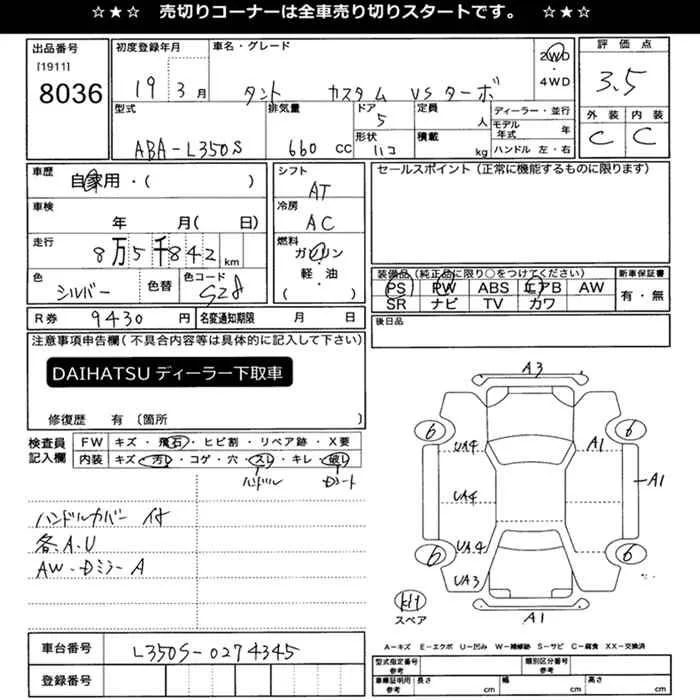 ☆★☆ 売切りコーナーは全車売り切りスタートです。 ☆★☆
出品番号
[1911]
8036
初度登録年月
19 3月
車名・グレード
タント カスタム VSターボ
2WD
・
4WD
評価点
3.5
外装 内装
C C
型式
ABA-L350S
排気量
660 cc
ドア
5
形状
ハコ
定員
人
積載
kg
ディーラー・並行
モデル年式 年
ハンドル 左・右
車歴
自家用・( )
車検
年 月( 日)
走行
8万5千842 km
色
シルバー
色替
色コード
S28
シフト
AT
冷房
AC
燃料
ガソリン
・
軽・油
( )
セールスポイント(正常に機能するものに限ります)
装備品(純正品に限り○をつけてください)
PS PW ABS エアB AW
SR ナビ TV カワ
新車保証書
有・無
R券 9430 円
名変通知期限 月 日
後日品
注意事項申告欄(不具合内容等は具体的に記入して下さい)
DAIHATSU ディーラー下取車
修復歴 有〔箇所 〕
検査員
記入欄
FW キズ・飛石・ヒビ割・リペア跡・X要
内装 キズ・汚れ・コゲ・穴・スレ・キレ・破れ
ハンドル Dシート
ハンドルカバー付
各A.U
AW・Dミラー A
A3
6 6
UA4 A1
UA4 A1
UA4
6 6
UA3
A1
スペア
A－キズ E－エクボ U－凹み W－補修跡 S－サビ C－腐食 XX－交換済
車台番号 L350S-0274345
登録番号
型式指定番号
参考
類別区分番号
参考
車庫証明用
参考
長さ cm
幅 cm
高さ cm